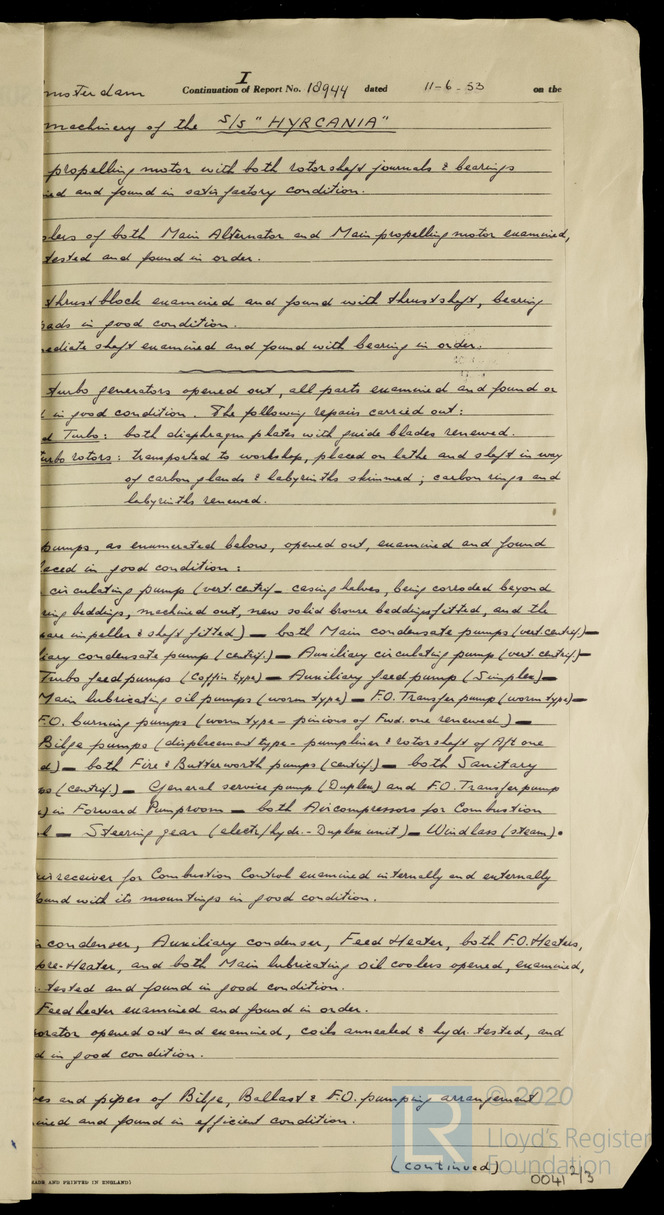 msterdam Continuation of Report No. 18944 dated 11-6-53 on the
I
machinery of the S/S "HYRCANIA"
propelling motor with both rotorshaft journals & bearings
ned and found in satisfactory condition.
olers of both Main Alternator and Main propelling motor examined,
tested and found in order.
thrust block examined and found with thrustshaft, bearing
pads in good condition.
mediate shaft examined and found with bearing in order.
turbo generators opened out, all parts examined and found or
d in good condition. The following repairs carried out:
d Turbo: both diaphragm plates with guide blades renewed.
turbo rotors: transported to workshop, placed on lathe and shaft in way
of carbon glands & labyrinths skimmed; carbon rings and
labyrinths renewed.
pumps, as enumerated below, opened out, examined and found
laced in good condition:
circulating pump (vert. centrif - casing halves, being corroded beyond
ring beddings, machined out, new solid bronze beddings fitted, and the
pare impeller & shaft fitted) — both Main condensate pumps (vert. centrif.) —
liary condensate pump (centrif.) — Auxiliary circulating pump (vert. centrif.) —
Turbo feed pumps (Coffin type) — Auxiliary feed pump (Simplex) —
Main lubricating oil pumps (worm type) — F.O. Transfer pump (worm type) —
F.O. burning pumps (worm type - pinions of Fwd. one renewed) —
Bilge pumps (displacement type - pumpliner & rotorshaft of Aft one
d) — both Fire & Butterworth pumps (centrif.) — both Sanitary
ps (centrif.) — General service pump (Duplex) and F.O. Transfer pump
x) in Forward Pumproom — both Aircompressors for Combustion
l — Steering gear (electr/hydr. - Duplex unit) — Windlass (steam).
air receiver for Combustion Control examined internally and externally
ound with its mountings in good condition.
n condenser, Auxiliary condenser, Feed Heater, both F.O. Heaters,
pre-Heater, and both Main lubricating oil coolers opened, examined,
. tested and found in good condition.
Feedheater examined and found in order.
porator opened out and examined, coils annealed & hydr. tested, and
d in good condition.
ves and pipes of Bilge, Ballast & F.O. pumping arrangement
mined and found in efficient condition.
(continued)
© 2020
LR
Lloyd's Register
Foundation
0041 2/3
MADE AND PRINTED IN ENGLAND)